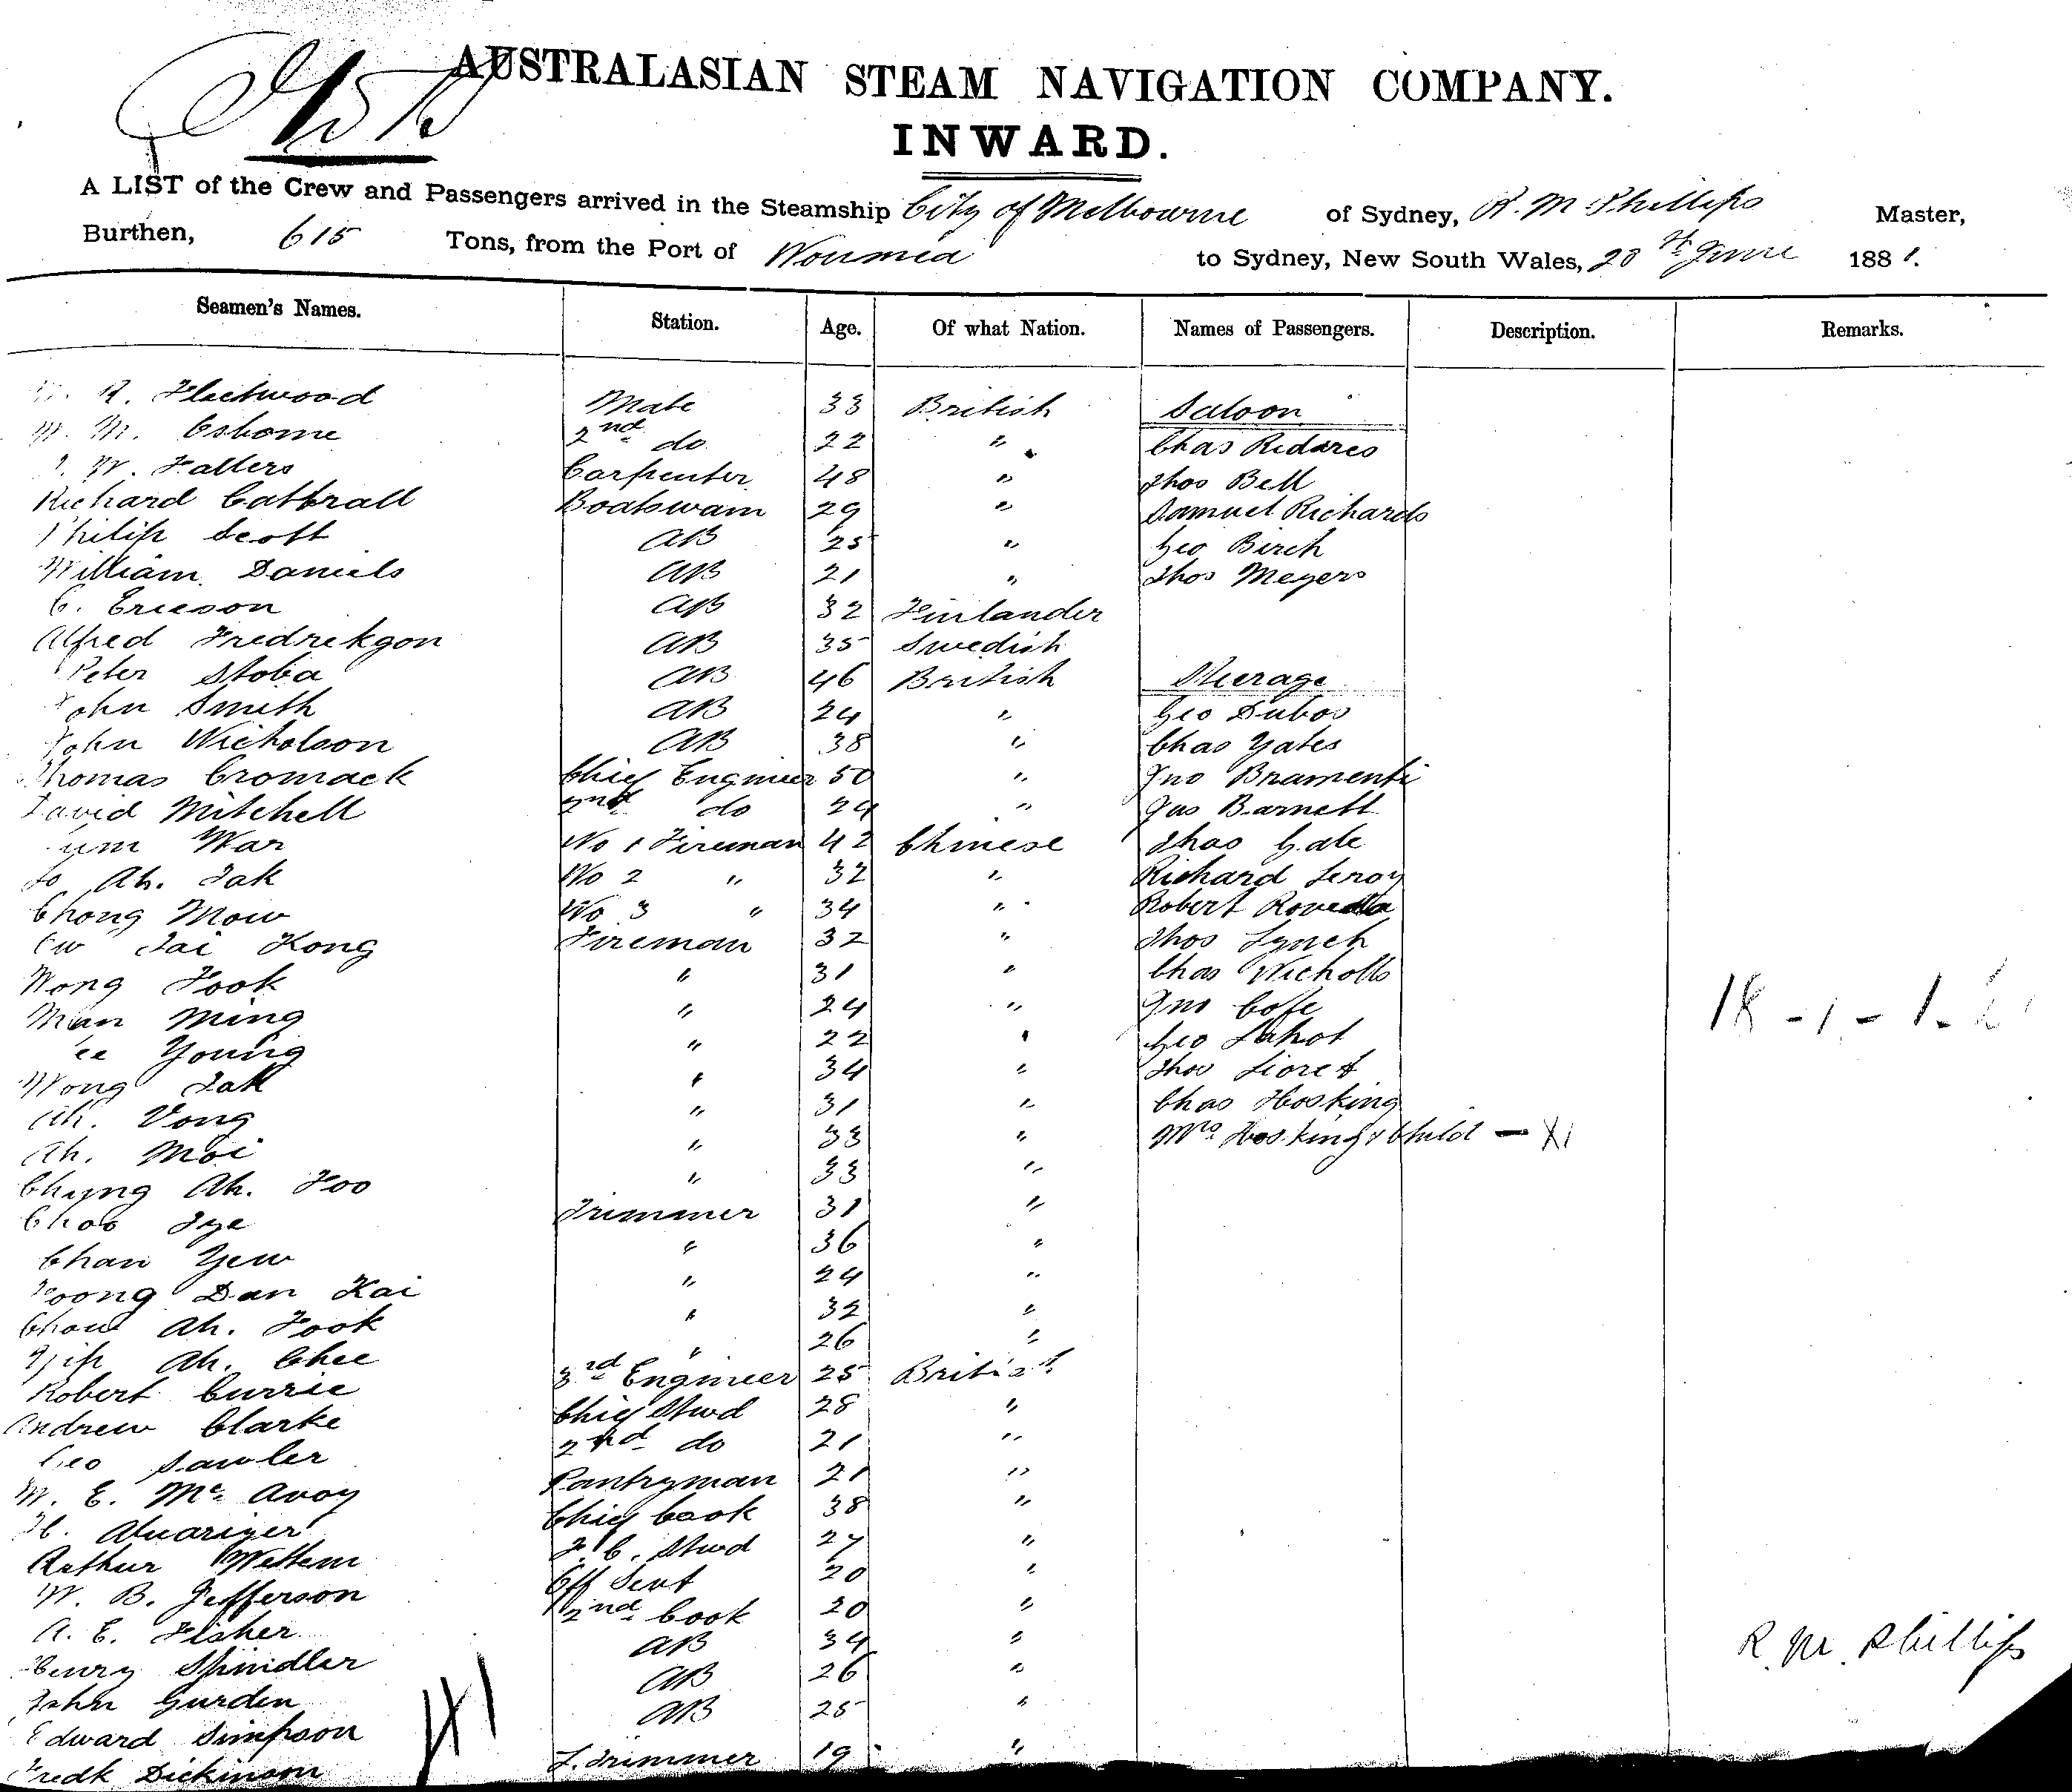 AUSTRALASIAN STEAM NAVIGATION COMPANY.
INWARD.
A LIST of the Crew and Passengers arrived in the Steamship City of Melbourne of Sydney, R. M. Phillips Master,
Burthen, 615 Tons, from the Port of Noumea to Sydney, New South Wales, 20th June 1881.
Seamen's Names. Station. Age. Of what Nation. Names of Passengers. Description. Remarks.
R. Fleetwood Mate 33 British Saloon
M. Osborne 2nd do 22 " Chas Ridares
W. Falters Carpenter 48 " Thos Bell
Richard Cattrall Boatswain 29 " Samuel Richards
Philip Scott AB 25 " Geo Birch
William Daniels AB 21 " Thos Meyers
C. Ericson AB 32 Finlander
Alfred Fredrekgon AB 35 Swedish
Peter Stoba AB 46 British Steerage
John Smith AB 24 " Geo Dubos
John Nicholson AB 38 " Chas Yates
Thomas Cromack Chief Engineer 50 " Jno Bramenti
David Mitchell 2nd do 24 " Jas Barnett
War No 1 Fireman 42 Chinese Thos Gate
Ah. Tak No 2 " 32 " Richard Leroy
Chong Mow No 3 " 34 " Robert
Tai Kong Fireman 32 " Thos Lynch
Wong Fook " 31 " Chas Nicholls
Man Ming " 24 " Jno Cofe
Young " 22 " Geo
Wong Tak " 34 " Thos
Ah. Vong " 31 " Chas Hosking
Ah. Moi " 33 " Mrs Hosking & Child — X1
Chung Ah. Foo " 33 "
Tye Trimmer 31 "
Chan Yew " 36 "
Dan Kai " 24 "
Ah. Fook " 32 "
Ah. Chee " 26 "
Robert Currie 3rd Engineer 25 British
Andrew Clarke Chief Stwd 28 "
Geo Sawler 2nd do 21 "
W. E. McAvoy Pantryman 21 "
H. Chief Cook 38 "
Arthur F. C. Stwd 27 "
W. B. Jefferson Off Sevt 20 "
A. E. Fisher 2nd Cook 20 "
Henry Spindler AB 34 "
John Gurden AB 26 "
Edward Simpson AB 25 "
Fredk Dickinson F. Trimmer 19 "
18 - 1 - 1 -
R. M. Phillips